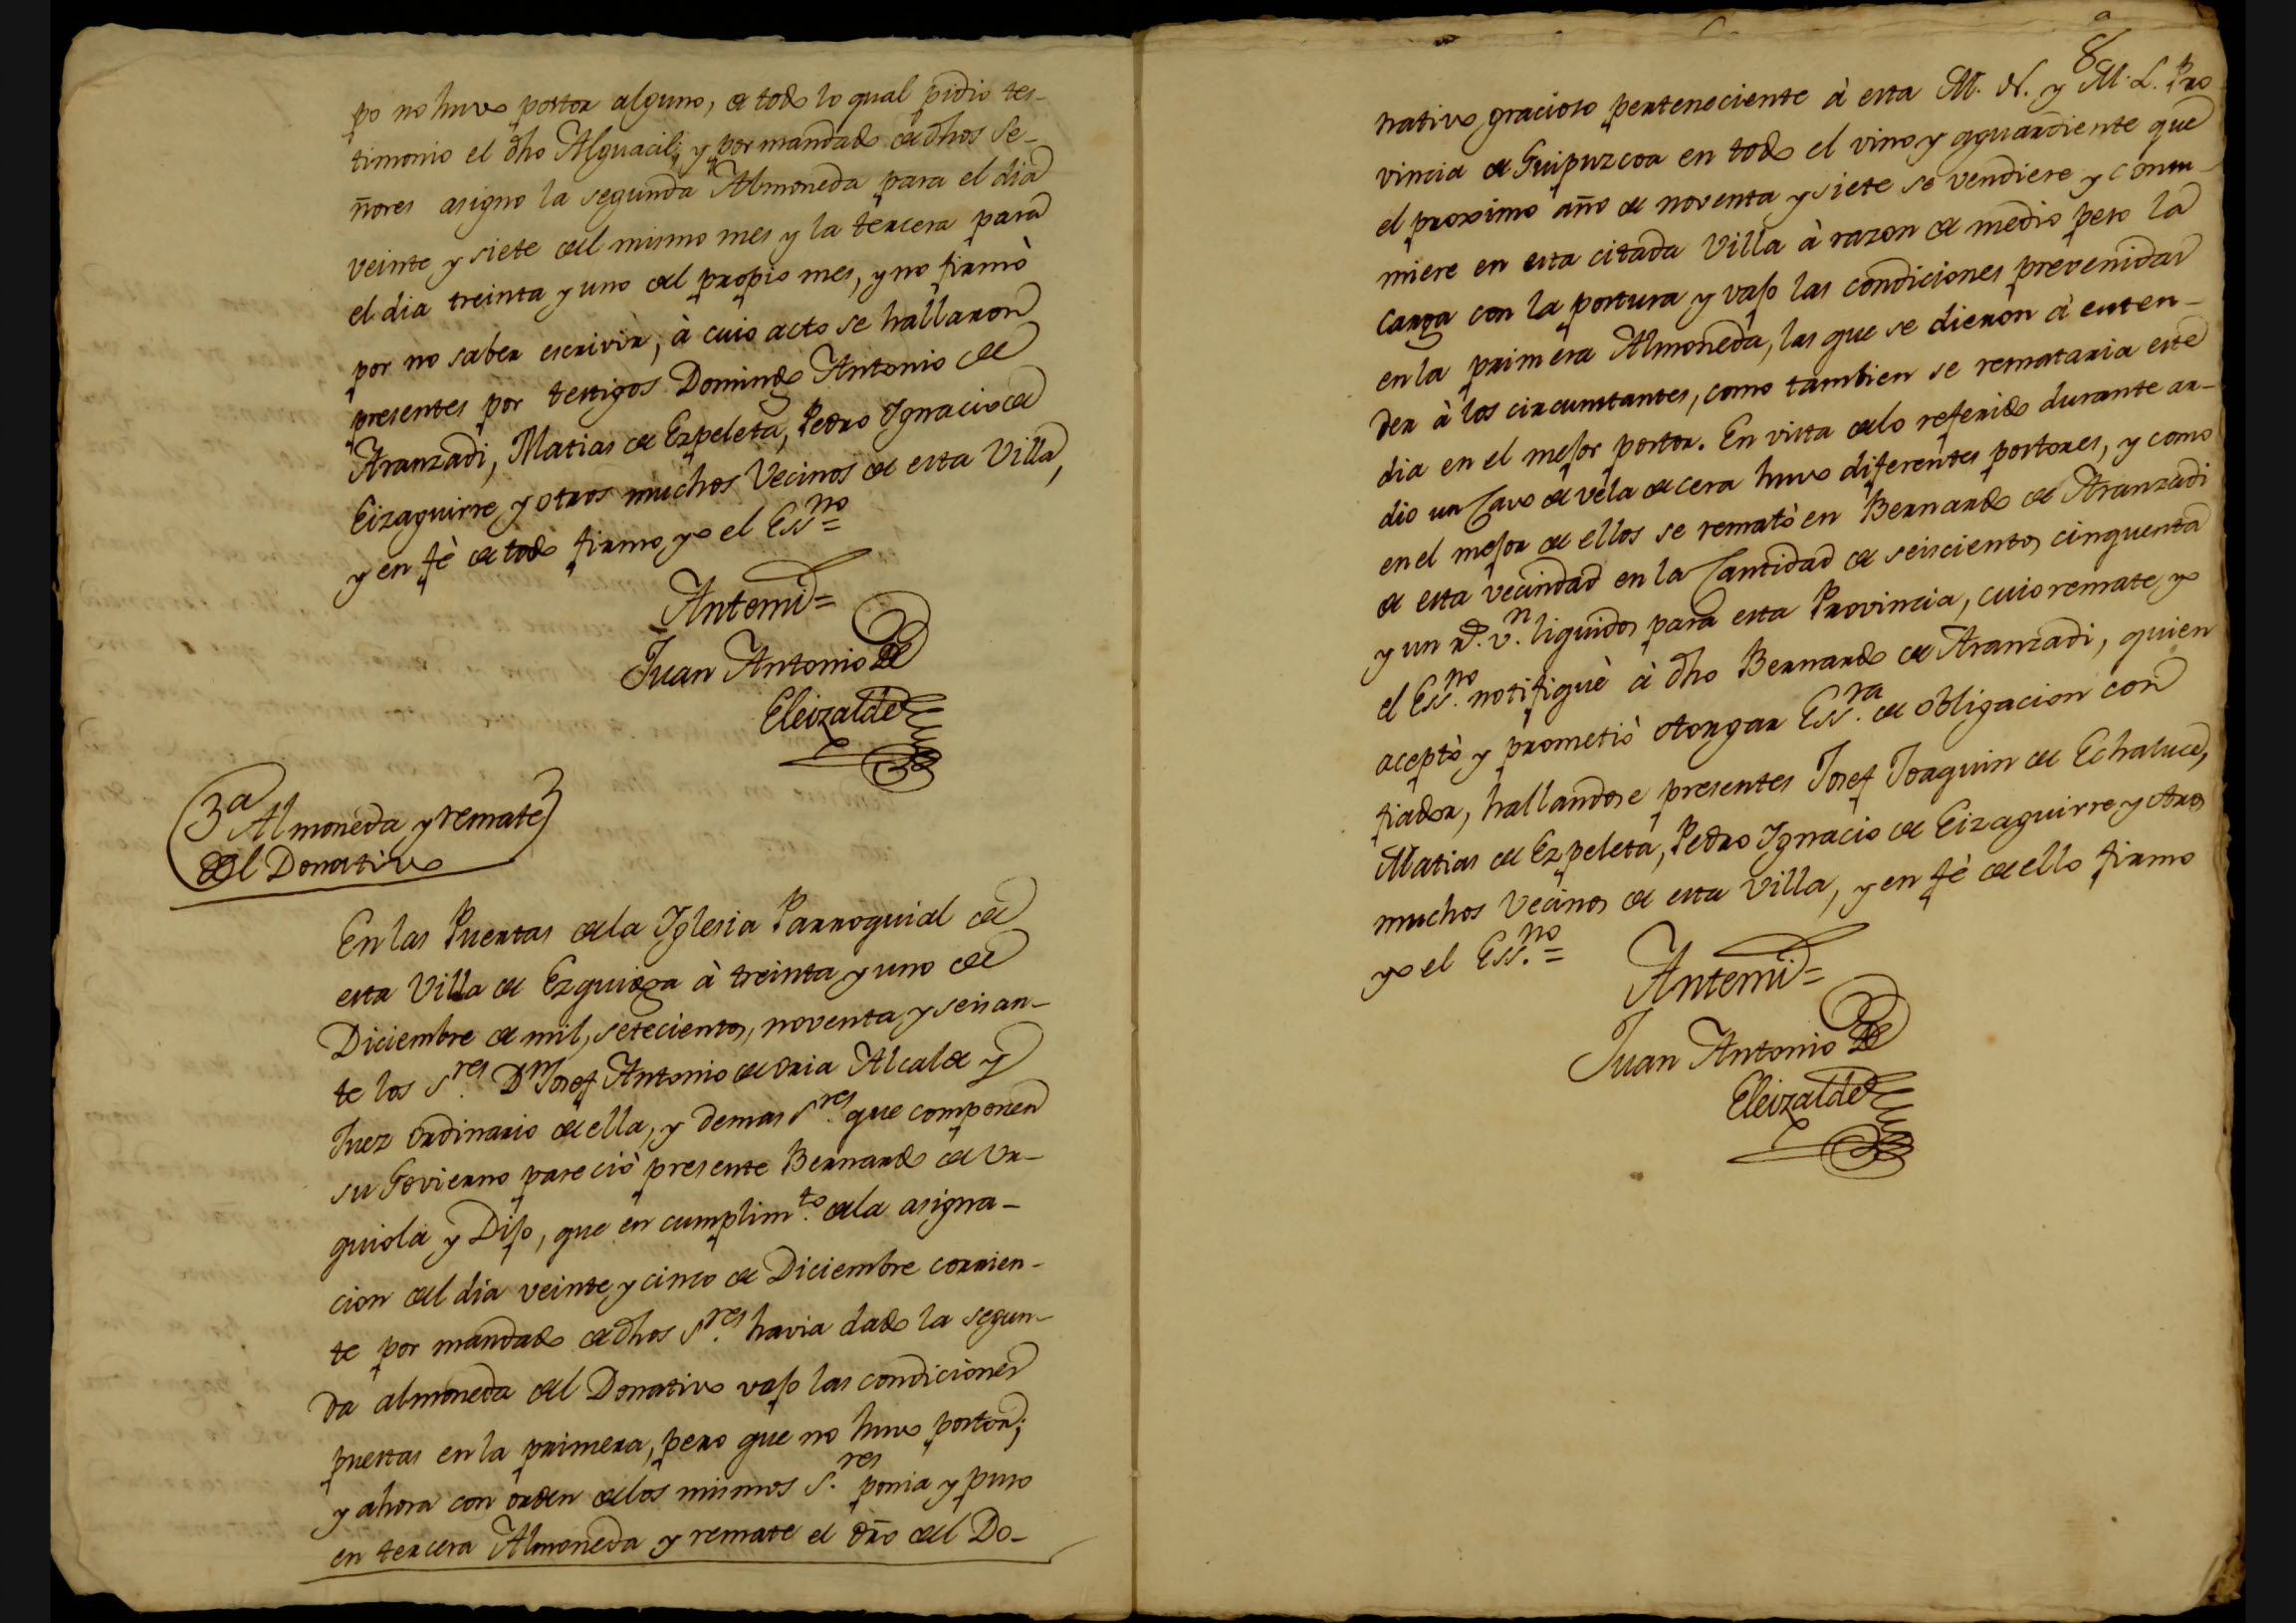 po no huvo postor alguno, de todo lo qual pidio tes-
timonio el dho Alguacil; y por mandado de dhos Se-
ñores asigno la segunda Almoneda para el dia
veinte y siete del mismo mes y la tercera para
el dia treinta y uno del propio mes, y no firmò
por no saber escrivir, à cuio acto se hallaron
presentes por testigos Domingo Antonio de
Aranzadi, Matias de Ezpeleta, Pedro Ignacio de
Eizaguirre y otros muchos Vecinos de esta Villa,
y en fè de todo firmo yo el Ess.no =
Antemi =
Juan Antonio de
Eleizalde
3.a Almoneda y remate
del Donativo
En las Puertas de la Iglesia Parroquial de
esta Villa de Ezquioga à treinta y uno de
Diciembre de mil, setecientos, noventa, y seis an-
te los S.res D.n Josef Antonio de Oria Alcalde y
Juez ordinario de ella, y demas S.res que componen
su Govierno pareciò presente Bernardo de Ur-
quiola y Dijo, que en cumplim.to de la asigna-
cion del dia veinte y cinco de Diciembre corrien-
te por mandado de dhos S.res havia dado la segun-
da almoneda del Donativo vajo las condiciones
puestas en la primera, pero que no huvo postor;
y ahora con orden de los mismos S.res ponia y puso
en tercera Almoneda y remate el dro del Do-
8
nativo gracioso perteneciente à esta M. N. y M. L. Pro
vincia de Guipuzcoa en todo el vino y aguardiente que
el proximo año de noventa y siete se vendiere y consu-
miere en esta citada Villa à razon de medio peso la
carga con la postura y vajo las condiciones prevenidas
en la primera Almoneda, las que se dieron à enten-
der à los circunstantes, como tambien se remataria este
dia en el mejor postor. En vista de lo referido durante ar-
dio un Cavo de vela de cera huvo diferentes postores, y como
en el mejor de ellos se rematò en Bernardo de Aranzadi
de esta vecindad en la Cantidad de seiscientos cinquenta
y un r.s v.n liquidos para esta Provincia, cuio remate yo
el Ess.no notifiquè à dho Bernardo de Aranzadi, quien
aceptò y prometiò otorgar Ess.ra de obligacion con
fiador, hallandose presentes Josef Joaquin de Echaluce,
Matias de Ezpeleta, Pedro Ignacio de Eizaguirre y otros
muchos Vecinos de esta Villa, y en fè de ello firmo
yo el Ess.no =
Antemi =
Juan Antonio de
Eleizalde